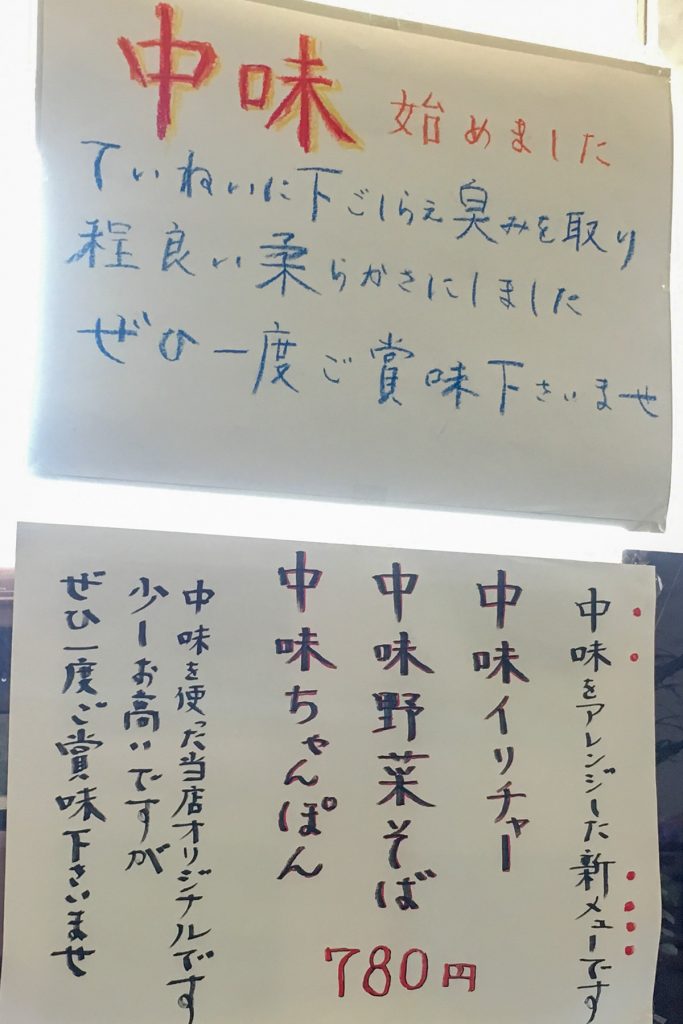 中味 始めました
ていねいに下ごしらえ臭みを取り
程良い柔らかさにしました
ぜひ一度ご賞味下さいませ
中味をアレンジした新メニューです
中味イリチャー
中味野菜そば
中味ちゃんぽん
780円
中味を使った当店オリジナルです
少しお高いですが
ぜひ一度ご賞味下さいませ